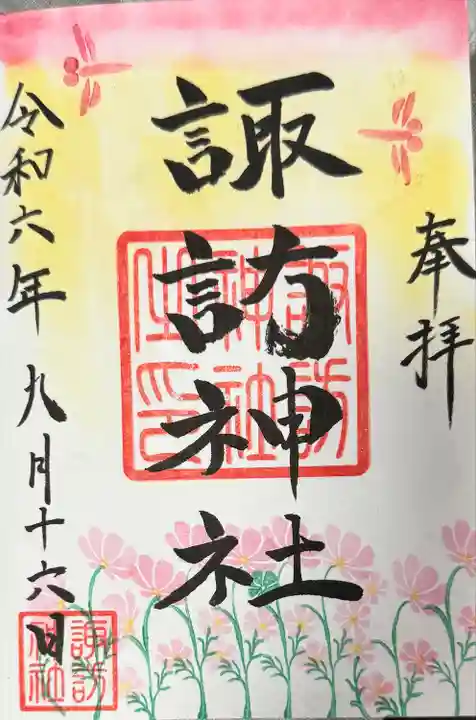 奉拝
諏訪神社
令和六年九月十六日
諏訪
神社